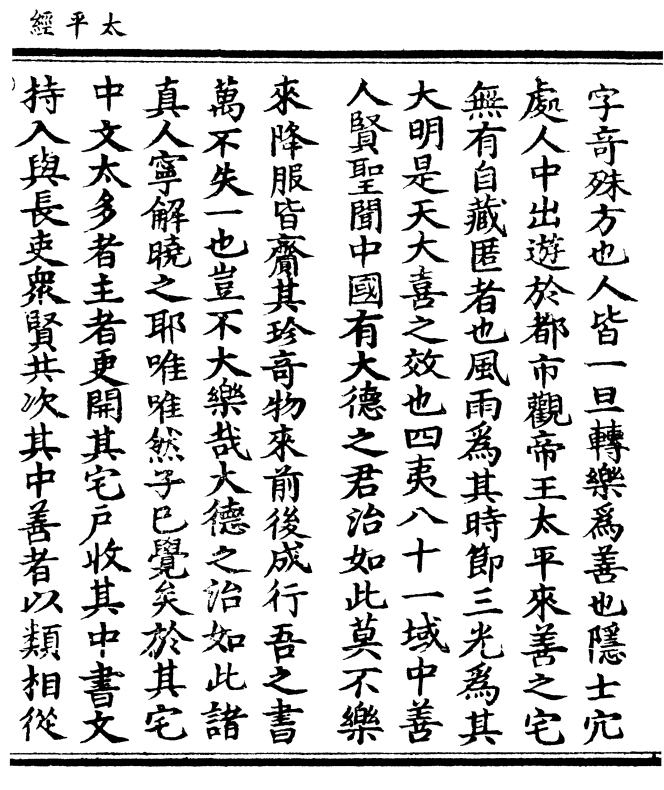 太平經
字奇殊方也人皆一旦轉樂爲善也隱士穴
處人中出遊於都市觀帝王太平來善之宅
無有自藏匿者也風雨爲其時節三光爲其
大明是天大喜之效也四夷八十一域中善
人賢聖聞中國有大德之君治如此莫不樂
來降服皆齎其珍奇物來前後成行吾之書
萬不失一也豈不大樂哉大德之治如此諸
真人寧解曉之耶唯唯然子已覺矣於其宅
中文太多者主者更開其宅戶收其中書文
持入與長吏衆賢共次其中善者以類相從